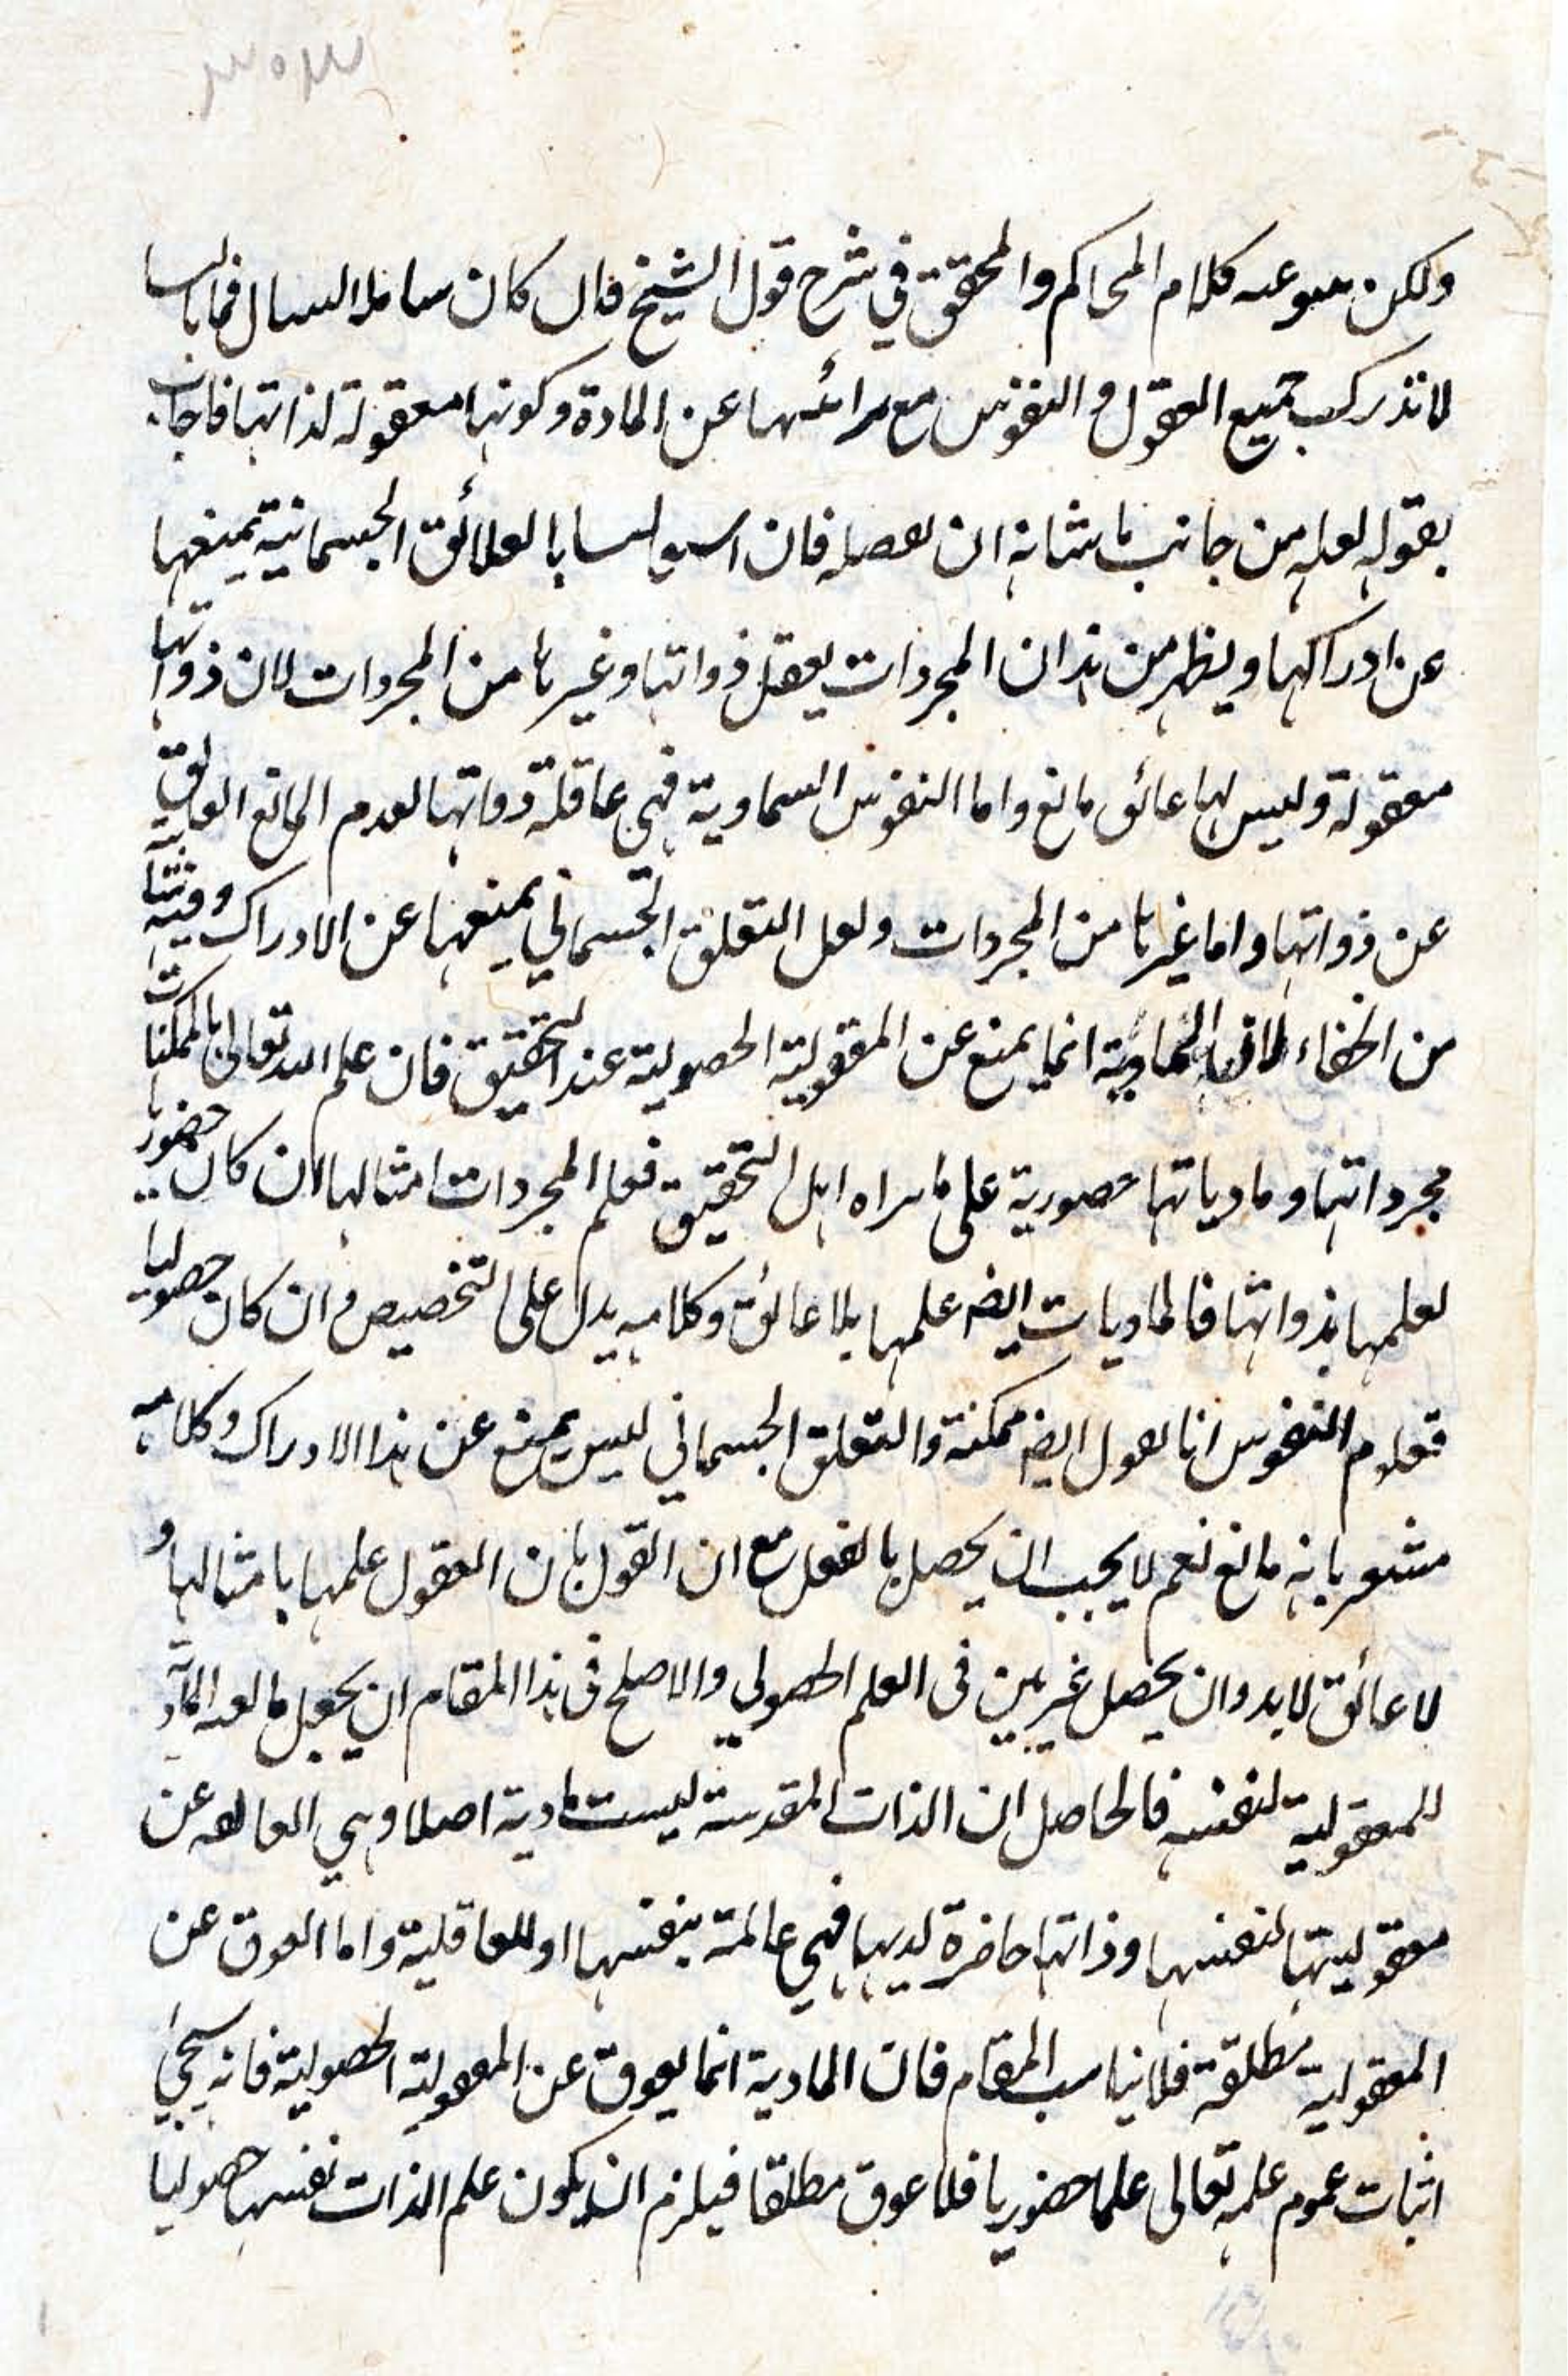 ولكن كلام المحاكم والمحقق في شرح قول الشيخ كان
لا تدرك جميع العقول والنفوس مع عن المادة وكونها معقولة لذاتها فاجاب
بقوله لعله من جانب ما شانه ان فان العلائق الجسمانية تمنعها
عن ادراكها ويظهر من هذا ان المجردات يعقل ذواتها وغيرها من المجردات لان ذواتها
معقولة وليس لها عائق مانع واما النفوس السماوية فهي عاقلة ذواتها لعدم المانع العائق
عن ذواتها واما غيرها من المجردات ولعل التعلق الجسماني يمنعها عن الادراك وفيه
من الخفاء انما يمنع عن المعقولية الحصولية عند التحقيق فان علم الله تعالى بالممكنات
مجرداتها ومادياتها حضورية على ما يراه اهل التحقيق فعلم المجردات امثالها ان كان حضوريا
لعلمها بذواتها فالماديات ايضا علمها بلا عائق وكلامه يدل على التخصيص وان كان حصوليا
النفوس ايضا ممكنة والتعلق الجسماني ليس يمنع عن هذا الادراك وكلامه
مشعر بانه مانع نعم لا يجب ان يحصل بالفعل مع ان القول بان العقول علمها بامثالها و
لا عائق لا بد وان يحصل غير بين في العلم الحصولي والاصلح في هذا المقام ان يجعل
للمعقولية لنفسه فالحاصل ان الذات المقدسة ليست مادية اصلا وهي عن
معقوليتها لنفسها وذاتها حاضرة لديها فهي عالمة بنفسها او للعاقلية واما العوق عن
المعقولية مطلقة فلا يناسب المقام فان المادية انما يعوق عن المعقولية الحصولية فانه سيجيء
اثبات عموم علمه تعالى علما حضوريا فلا عوق مطلقا فيلزم ان يكون علم الذات نفسها حصوليا